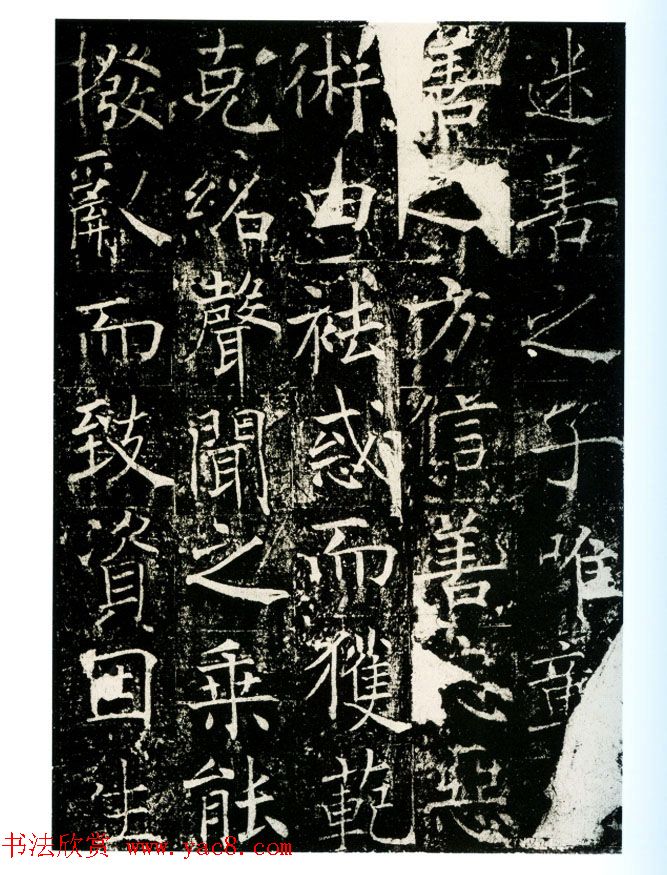 迷善之子唯
善之方信善之惡
術由祛惑而獲範
克紹聲聞之乘能
撥亂而致資因生
书法欣赏 www.yac8.com